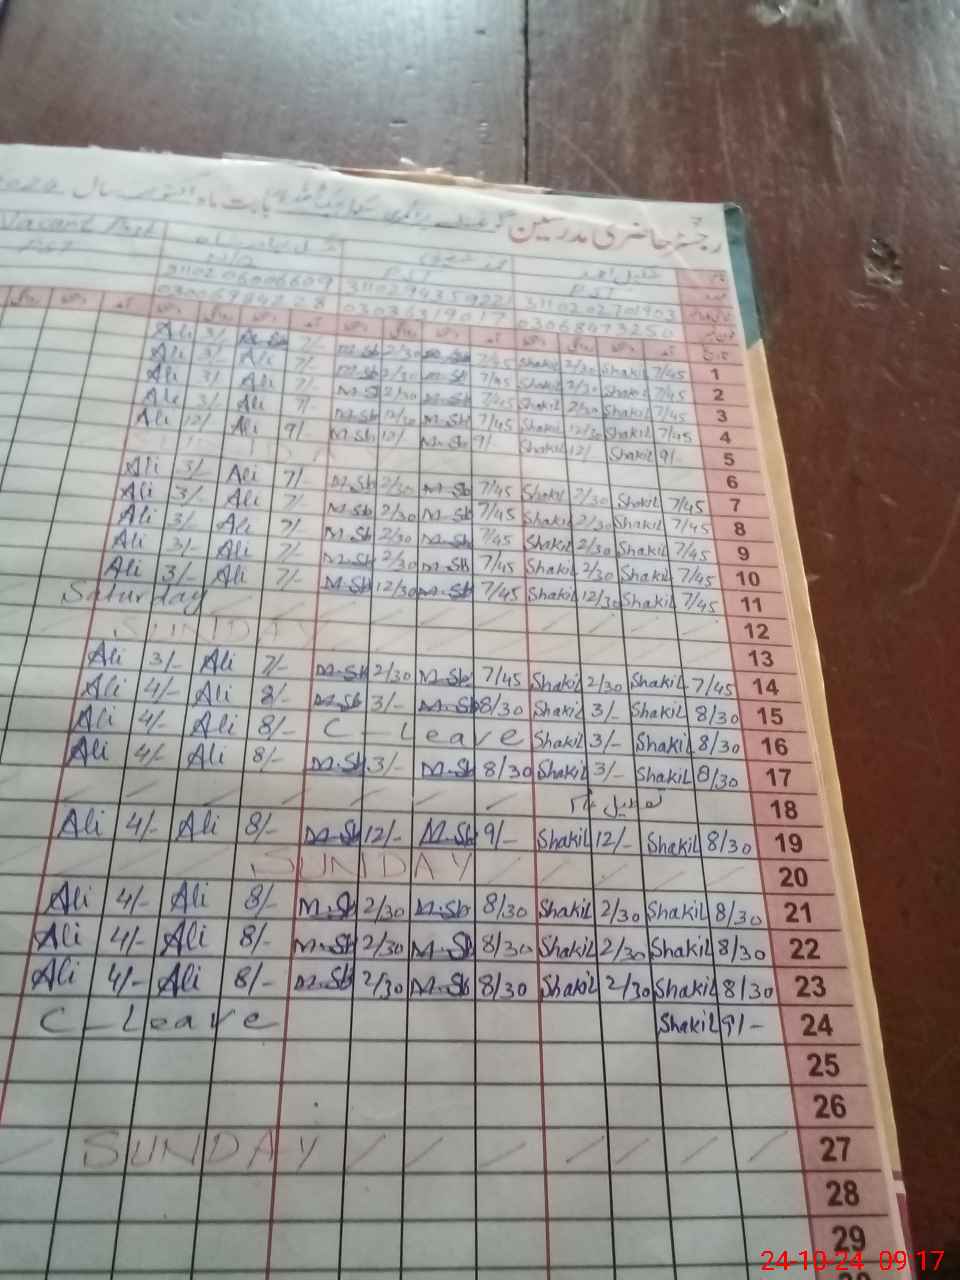 رجسٹر حاضری مدرسین بابت ماہ اکتوبر سال
Vacant Post
PST
شکیل احمد
PST
3110202701903
03068473250
Ali 3/- Ali 7/- M.Sb 2/30 M.Sb 7/45 Shakil 2/30 Shakil 7/45 1
Ali 3/- Ali 7/- M.Sb 2/30 M.Sb 7/45 Shakil 2/30 Shakil 7/45 2
Ali 3/- Ali 7/- M.Sb 2/30 M.Sb 7/45 Shakil 2/30 Shakil 7/45 3
Ali 3/- Ali 7/- M.Sb 12/30 M.Sb 7/45 Shakil 12/30 Shakil 7/45 4
Ali 12/- Ali 9/- M.Sb 12/- M.Sb 9/- Shakil 12/- Shakil 9/- 5
SUNDAY 6
Ali 3/- Ali 7/- M.Sb 2/30 M.Sb 7/45 Shakil 2/30 Shakil 7/45 7
Ali 3/- Ali 7/- M.Sb 2/30 M.Sb 7/45 Shakil 2/30 Shakil 7/45 8
Ali 3/- Ali 7/- M.Sb 2/30 M.Sb 7/45 Shakil 2/30 Shakil 7/45 9
Ali 3/- Ali 7/- M.Sb 2/30 M.Sb 7/45 Shakil 2/30 Shakil 7/45 10
Ali 3/- Ali 7/- M.Sb 12/30 M.Sb 7/45 Shakil 12/30 Shakil 7/45 11
Saturday 12
SUNDAY 13
Ali 3/- Ali 7/- M.Sb 2/30 M.Sb 7/45 Shakil 2/30 Shakil 7/45 14
Ali 4/- Ali 8/- M.Sb 3/- M.Sb 8/30 Shakil 3/- Shakil 8/30 15
Ali 4/- Ali 8/- C-Leave Shakil 3/- Shakil 8/30 16
Ali 4/- Ali 8/- M.Sb 3/- M.Sb 8/30 Shakil 3/- Shakil 8/30 17
18
Ali 4/- Ali 8/- M.Sb 12/- M.Sb 9/- Shakil 12/- Shakil 8/30 19
SUNDAY 20
Ali 4/- Ali 8/- M.Sb 2/30 M.Sb 8/30 Shakil 2/30 Shakil 8/30 21
Ali 4/- Ali 8/- M.Sb 2/30 M.Sb 8/30 Shakil 2/30 Shakil 8/30 22
Ali 4/- Ali 8/- M.Sb 2/30 M.Sb 8/30 Shakil 2/30 Shakil 8/30 23
C-Leave Shakil 9/- 24
25
26
SUNDAY 27
28
29
24-10-24 09:17